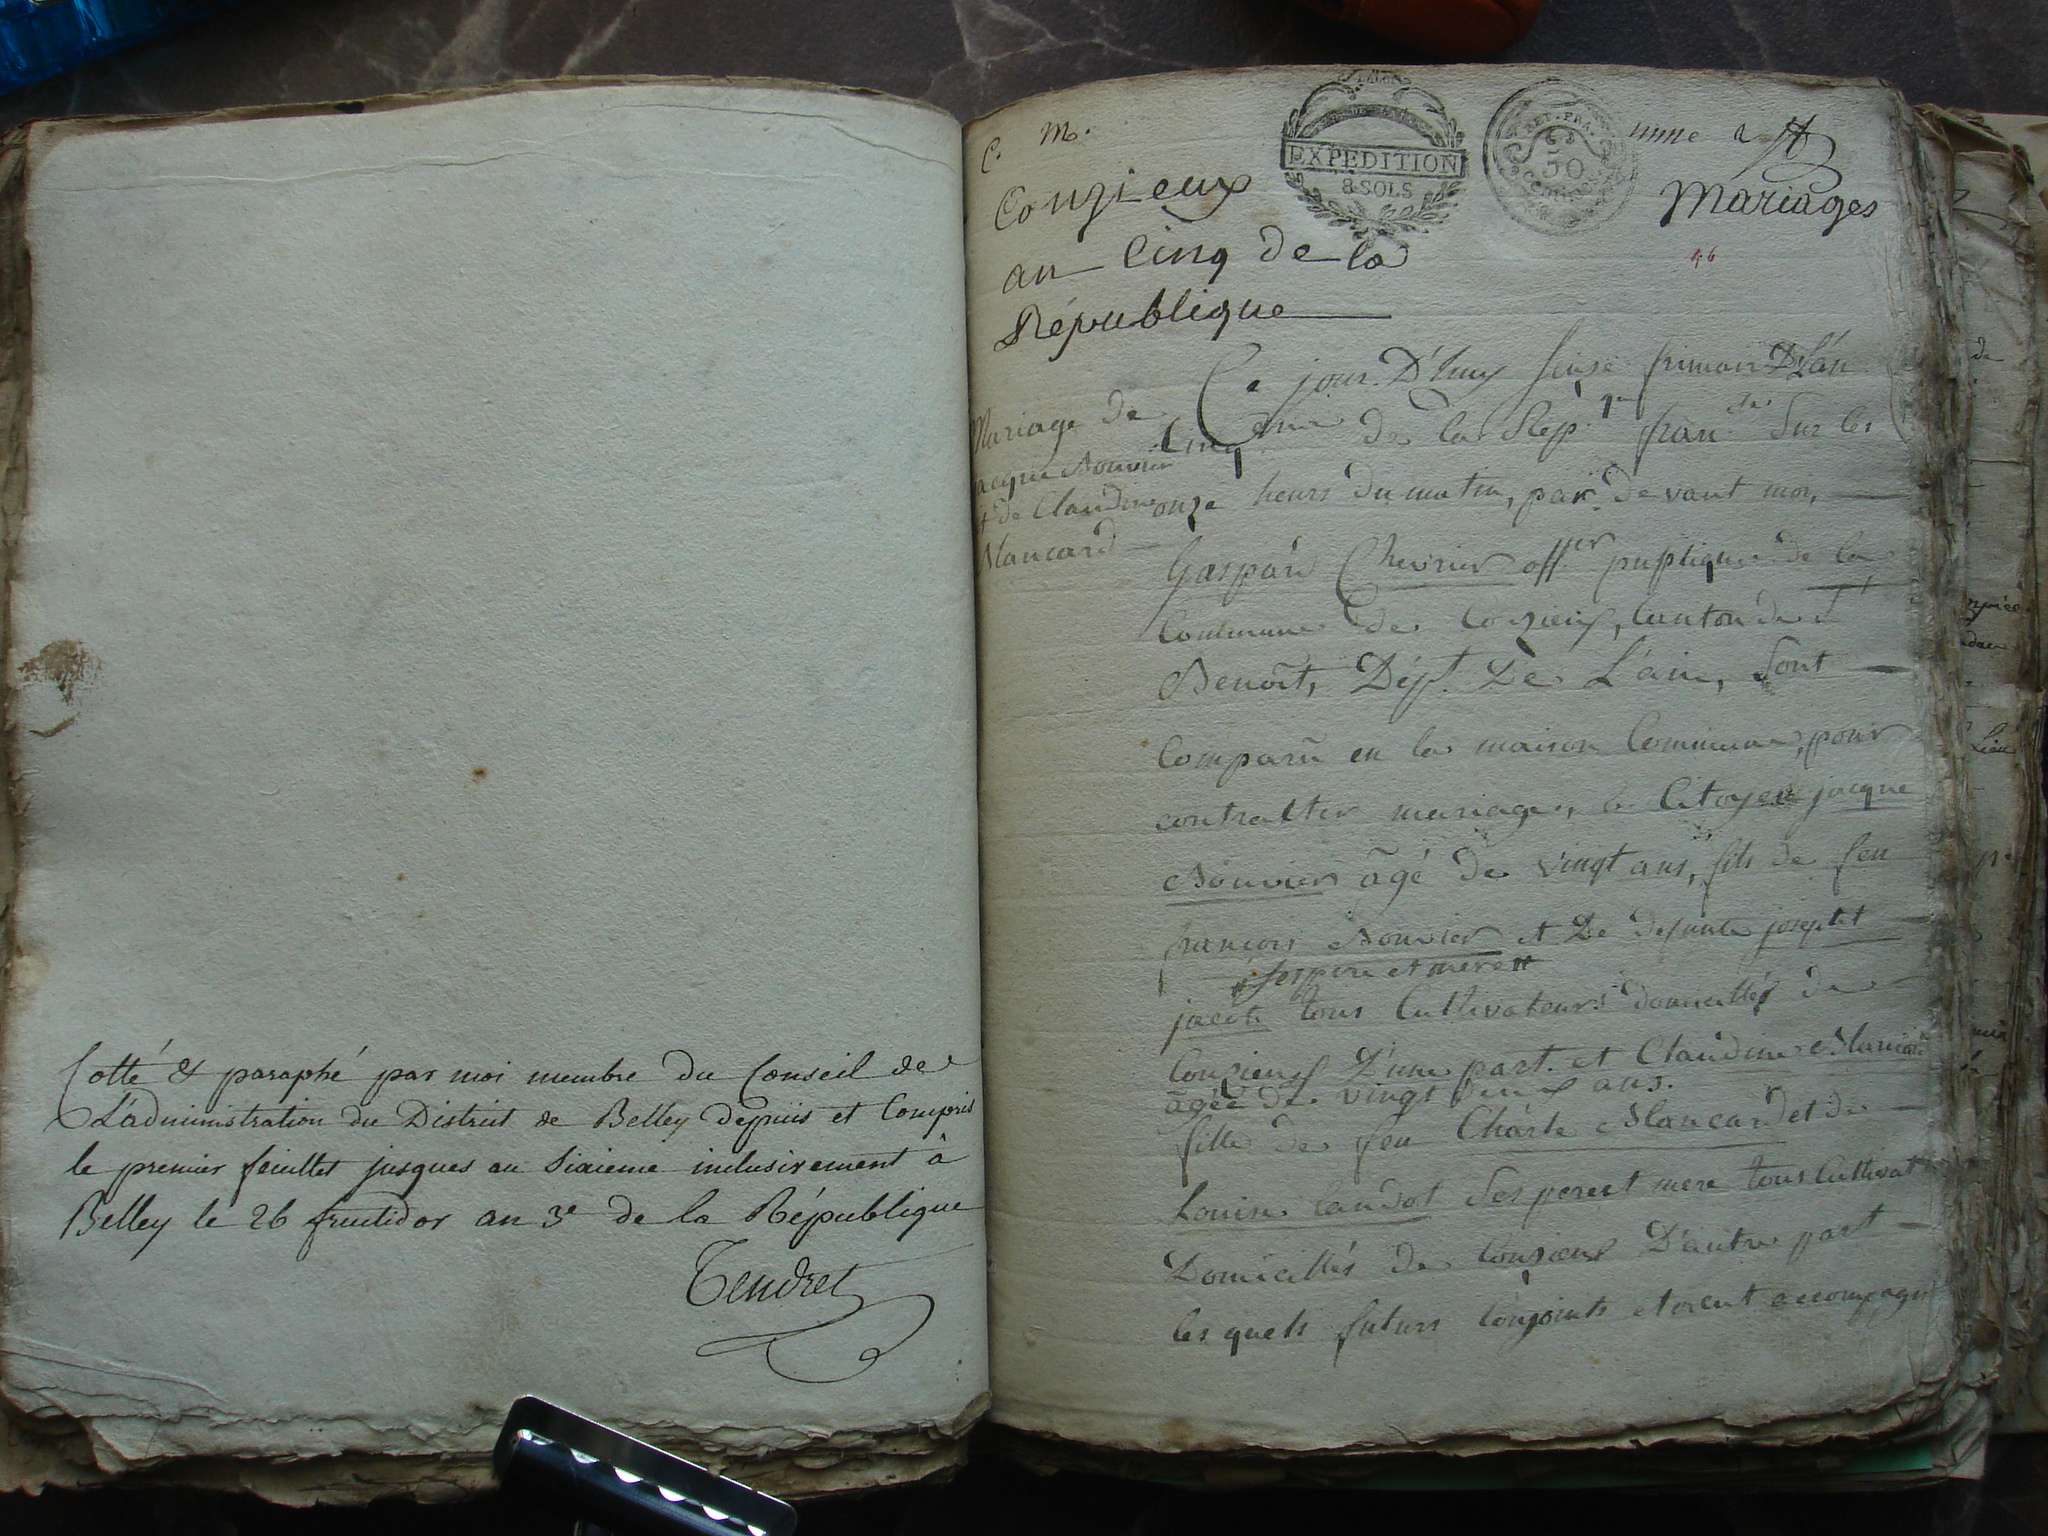 Cotté & paraphé par moi membre du Conseil de
L'administration du District de Belley depuis et Compris
le premier feuillet jusques au Sixieme inclusivement à
Belley le 26 fructidor an 3e de la République
Tendret
C. M.
EXPEDITION
8 SOLS
50
Mariages
Conzieux
an Cinq de la
République
Mariage de
jacque Bouvier
et de Claudine
Blancard
Ce jour D'huy seise frimair D L'an
Cinq de la Rép. fran. Sur les
onze heurs du matin, par devant moi,
Gaspard Chevrier off.er puplique de la
Commune de Conzieux, Canton de St
Benoît, Dépt. De L'ain, Sont
Comparu en la maison Commune, pour
contralter mariage, le Citoyen jacque
Bouvier âgé de vingt ans, fils de feu
françois Bouvier et De defunte josephet
ses pere et mere
tous Cultivateurs domicillés de
Conzieux D'une part. et Claudine Blancard
agée de vingt deux ans.
fille de feu Charle Blancard et de
Louise Landot Ses pere et mere tous Cultivat
Domicillés de Conzieux D'autre part
les quels futurs Conjoints etoient accompagn